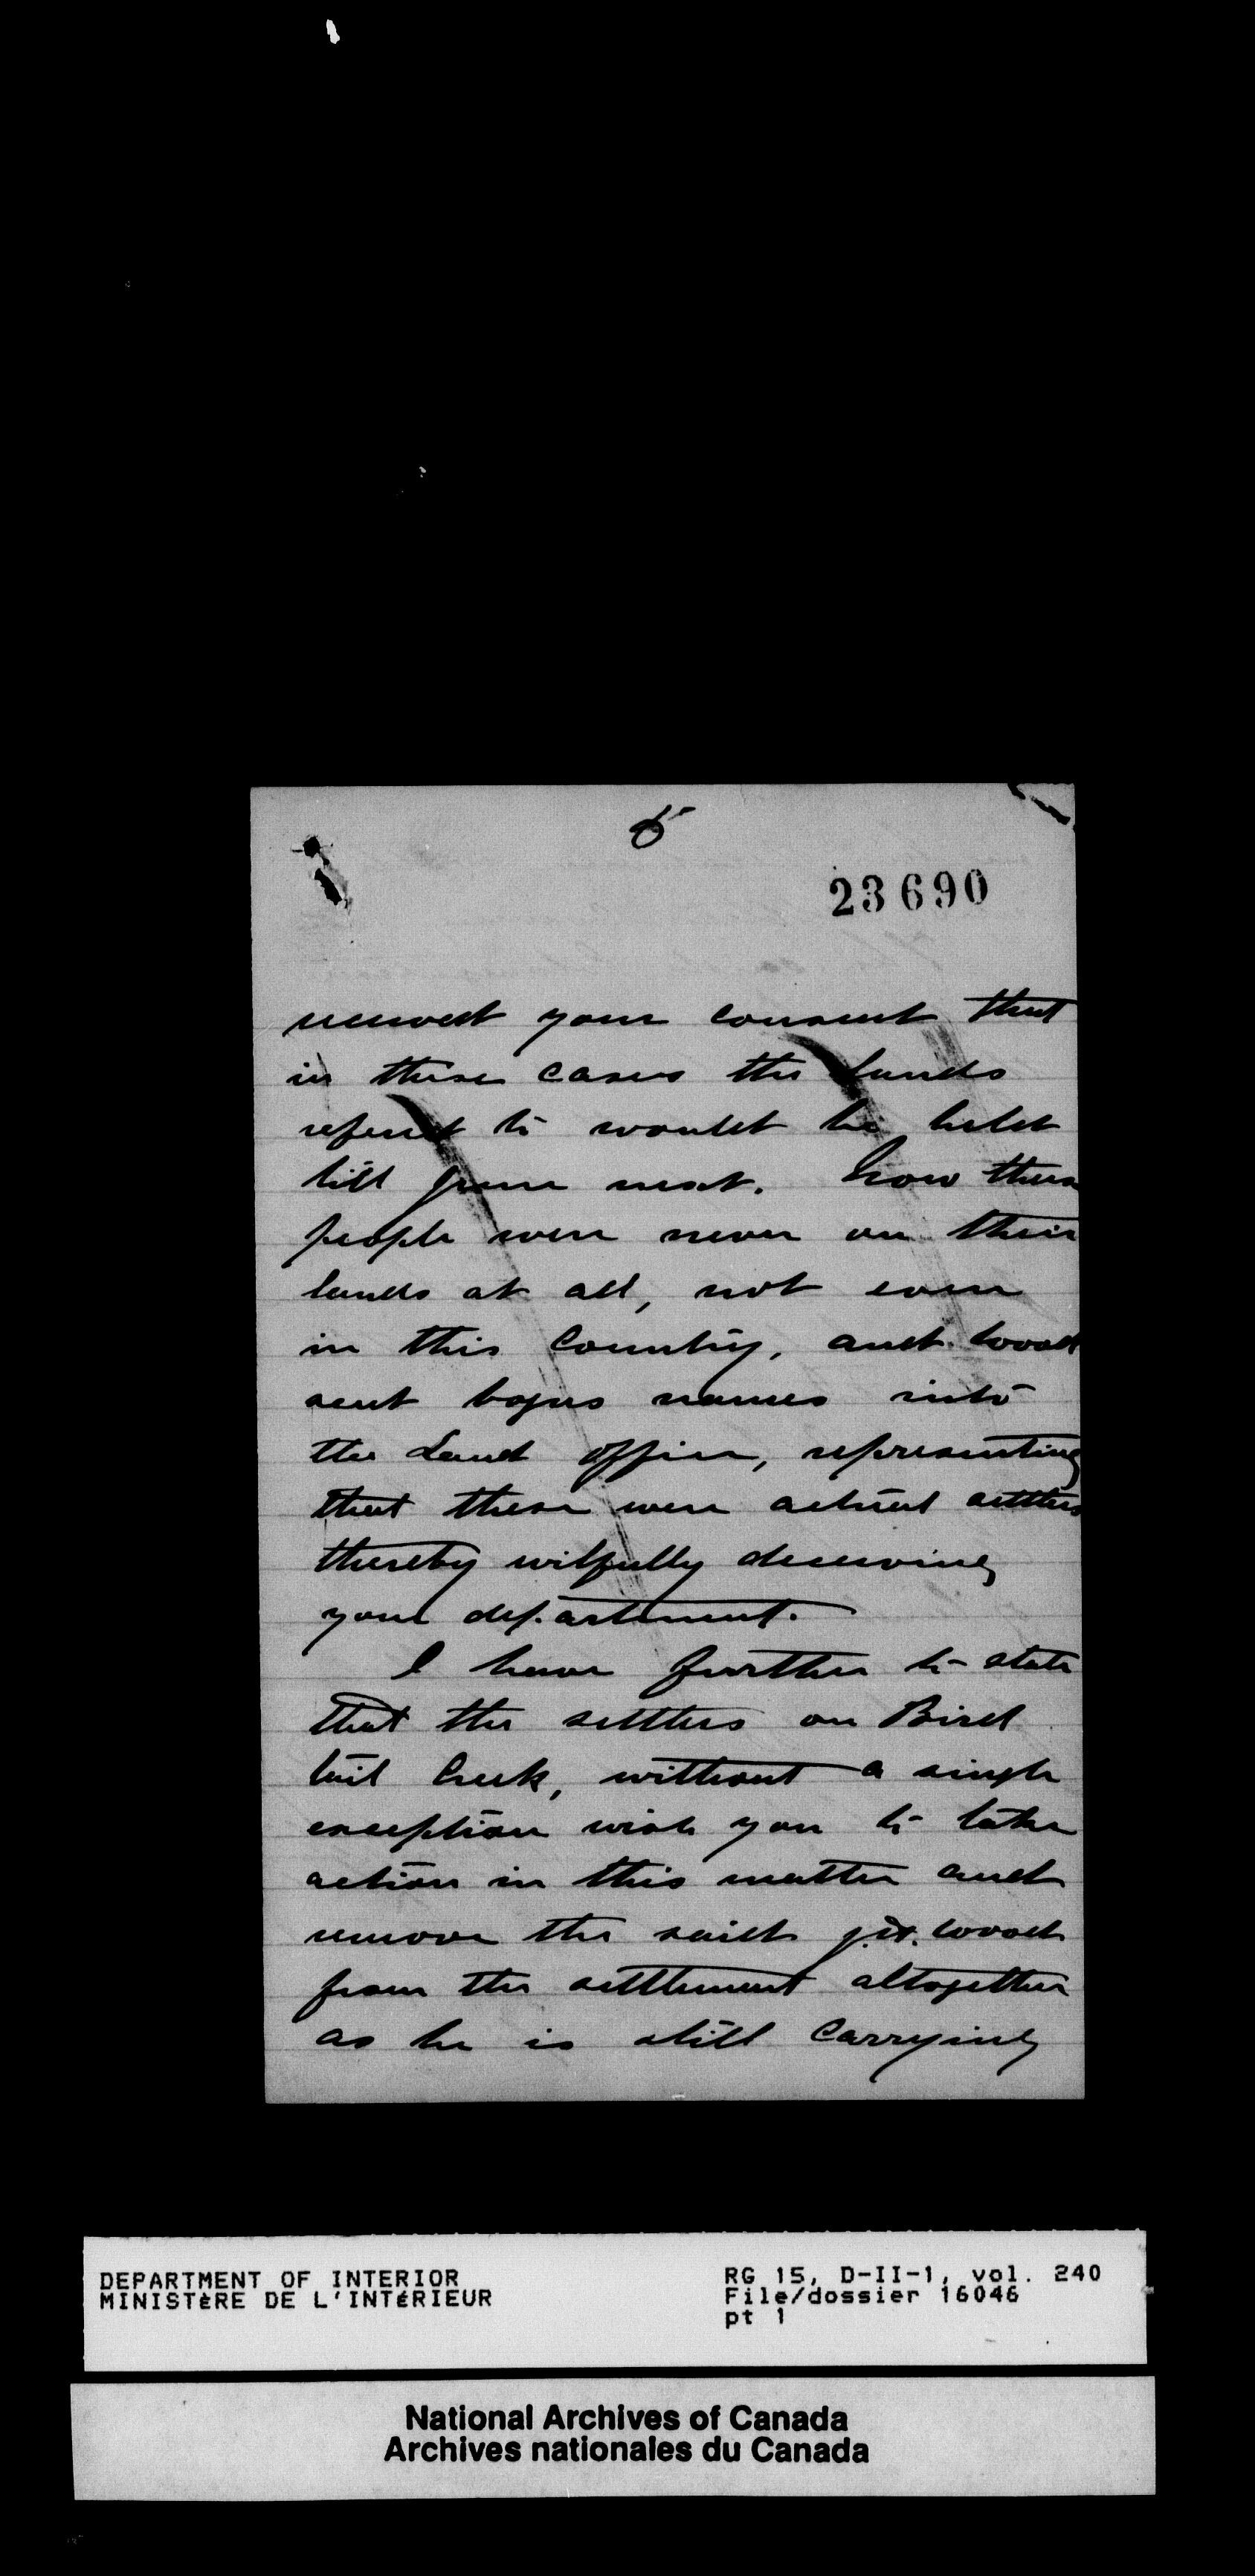 5
23690
received your consent that
in these cases the lands
referred to would be held
till June next. Now these
people were never on their
lands at all, not even
in this Country, and Wood
sent bogus names into
the Land Office, representing
that these were actual settlers
thereby wilfully deceiving
your department.
I have further to state
that the settlers on Bird
tail Creek, without a single
exception wish you to take
action in this matter and
remove the said Wood
from the settlement altogether
as he is still carrying
DEPARTMENT OF INTERIOR
MINISTÈRE DE L'INTÉRIEUR
RG 15, D-II-1, vol. 240
File/dossier 16046
pt 1
National Archives of Canada
Archives nationales du Canada